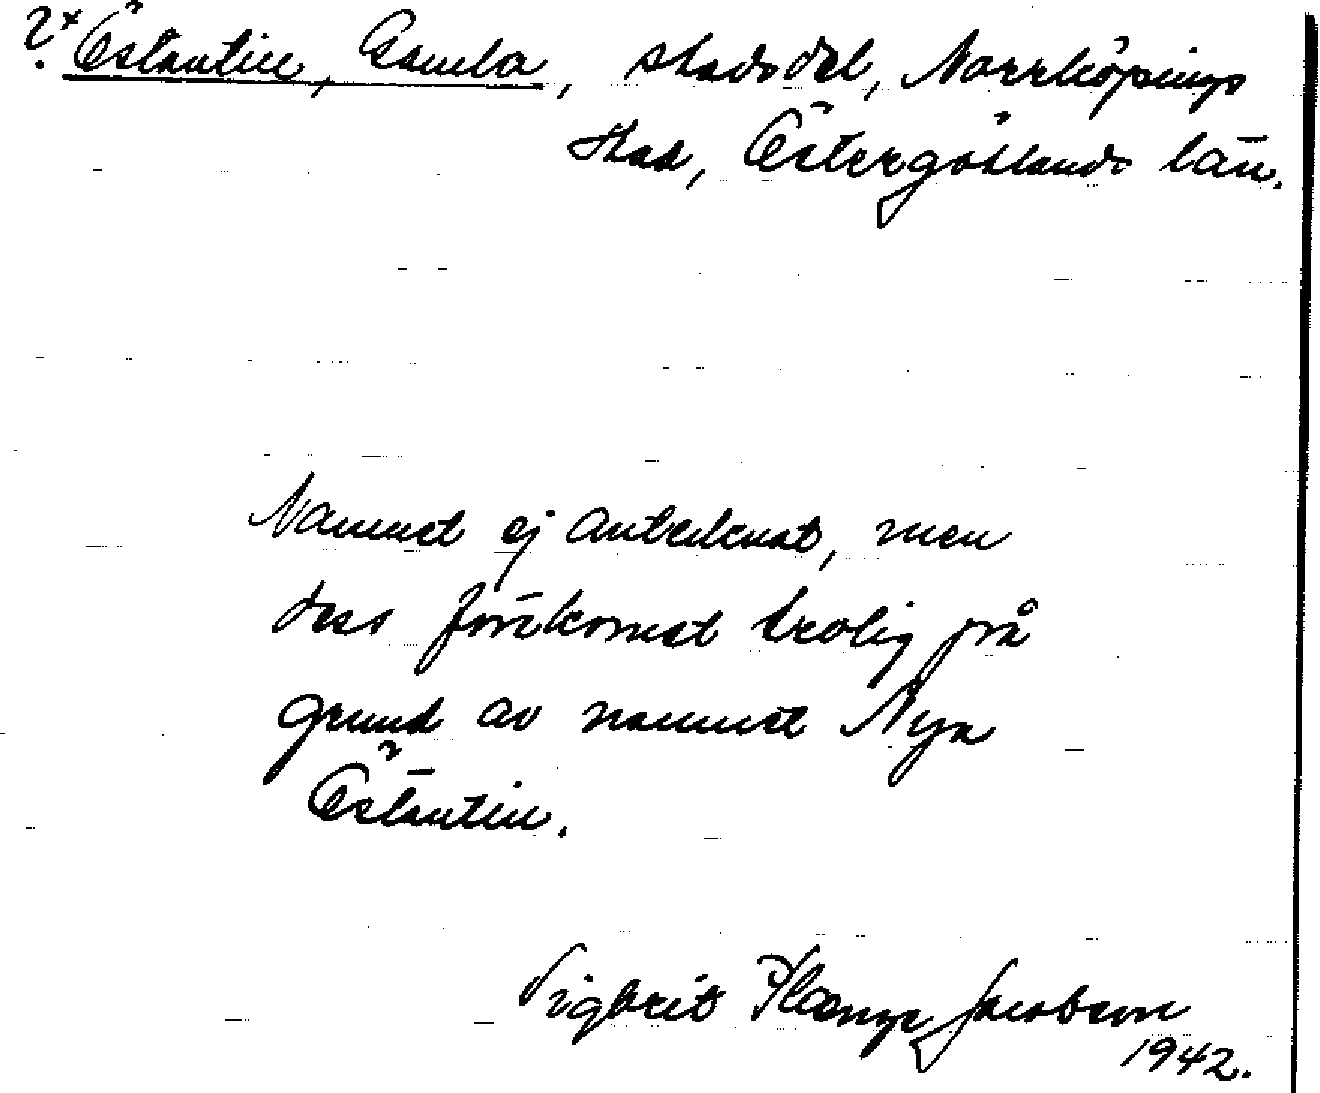 ?× Östantill, Gamla, stadsdel, Norrköpings
stad, Östergötlands län.
Namnet ej antecknat, men
dess förekomst trolig på
grund av namnet Nya
Östantill.
Sigbrit Plænge Jacobson
1942.